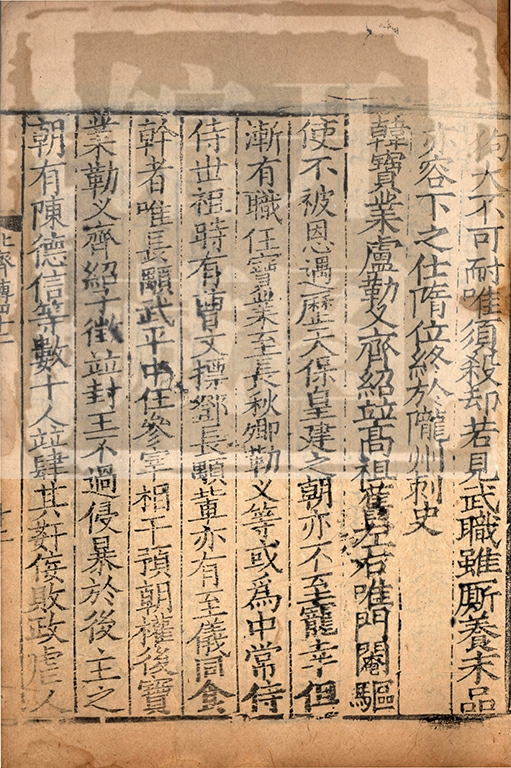 狗大不可耐唯須殺却若見武職雖廝養末品
亦容下之仕隋位終於隴州刺史
韓寶業盧勒乂齊紹並髙祖舊左右唯門閹驅
使不被恩遇歷天保皇建之朝亦不至寵幸但
漸有職任寶業至長秋卿勒乂等或為中常侍
侍世祖時有曹文摽鄧長顒軰亦有至儀同食
幹者唯長顒武平中任參宰相干預朝權後寶
業勒乂齊紹子徵並封王不過侵暴於後主之
朝有陳德信等數十人並肆其姧佞敗政虐人
北齊傳四十二